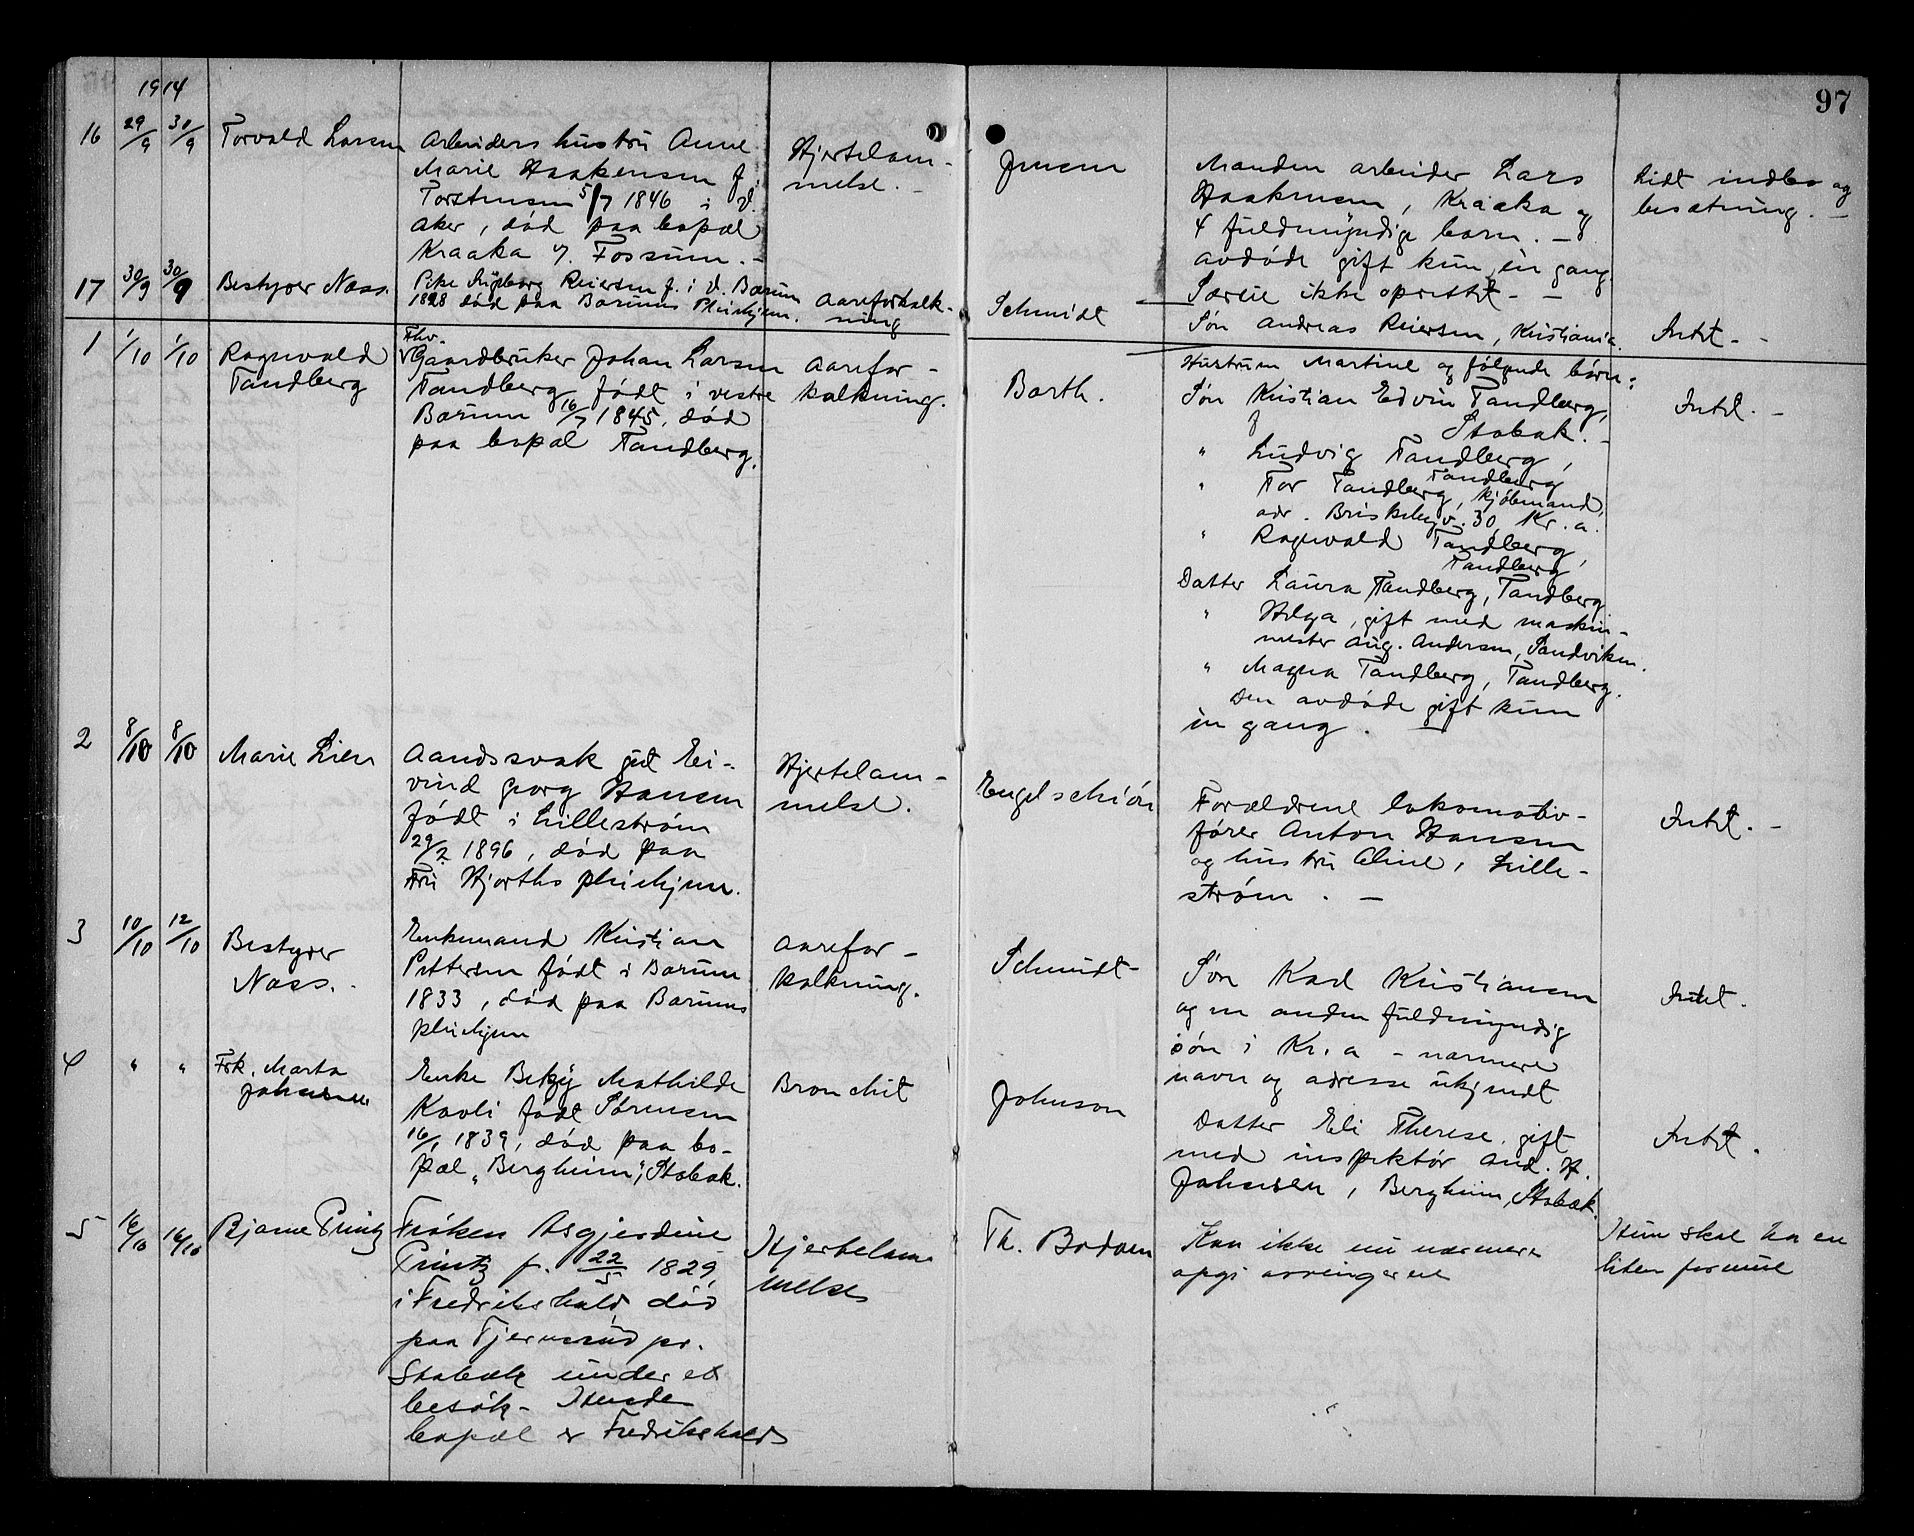 97
1914
16 29/9 30/9 Torvald Larsen
Arbeiders hustru Anne
Marie Haakensen f.
Torstensen 5/7 1846 i V.
aker, død paa bopæl
Kraaka v. Fossum. -
Hjertelam-
melse. -
Jensen
Manden arbeider Lars
Haakensen, Kraaka og
4 fuldmyndige barn. -
avdøde gift kun én gang.
Særeie ikke oprettet - -
Lidt indbo og
besætning. -
17 30/9 30/9 Bestyrer Næss.
Pike Ingeborg Reiersen f. i V. Bærum
1828 død paa Bærums Pleiehjem.
Aareforkalk-
ning
Schmidt
Søn Andreas Reiersen, Kristiania.
Intet. -
1 1/10 1/10 Ragnvald
Tandberg
Fhv.
Gaardbruker Johan Larsen
Tandberg født i vestre
Bærum 16/7 1845, død
paa bopæl Tandberg.
Aarefor-
kalkning.
Barth.
Hustruen Martine og følgende børn:
Søn Kristian Edvin Tandberg,
Stabæk. -
" Ludvig Tandberg,
Tandberg
" Tor Tandberg, kjøbmand,
adr. Briskebyv. 30, Kr.a.
" Ragnvald Tandberg,
Tandberg
Datter Laura Tandberg, Tandberg
" Helga, gift med maskin-
mester Aug. Andersen, Sandviken.
" Magna Tandberg, Tandberg.
Den avdøde gift kun
en gang.
Intet. -
2 8/10 8/10 Marie Lien
Aandssvak gut Ei-
vind Georg Hansen
født i Lillestrøm
29/2 1896, død paa
Fru Hjorths pleiehjem.
Hjertelam-
melse.
Engelschiøn
Forældrene lokomotiv-
fører Anton Hansen
og hustru Oline, Lille-
strøm. -
Intet. -
3 10/10 12/10 Bestyrer
Næss. -
Enkemand Kristian
Pettersen født i Bærum
1833, død paa Bærums
pleiehjem
Aarefor-
kalkning.
Schmidt-
Søn Karl Kristiansen
og en anden fuldmyndig
søn i Kr.a - nærmere
navn og adresse ukjendt
Intet.
4 " " Frk. Marta
Johansen
Enke Betzy Mathilde
Kavli født Sørensen
16/1 1839, død paa bo-
pæl "Bergheim", Stabæk.
Bronchit
Johnson
Datter Eli Therese, gift
med inspektør And. H.
Johansen, Bergheim, Stabæk.
Intet.
5 16/10 16/10 Bjarne Printz
Frøken Asgjerdine
Printz f. 22/5 1829
i Fredrikshald død
paa Tjernsrud pr.
Stabæk under et
besøk - Hendes
bopæl er Fredrikshald
Hjertelam
melse
Th. Bodom
Kan ikke nu nærmere
opgi arvingerne
Hun skal ha en
liten formue